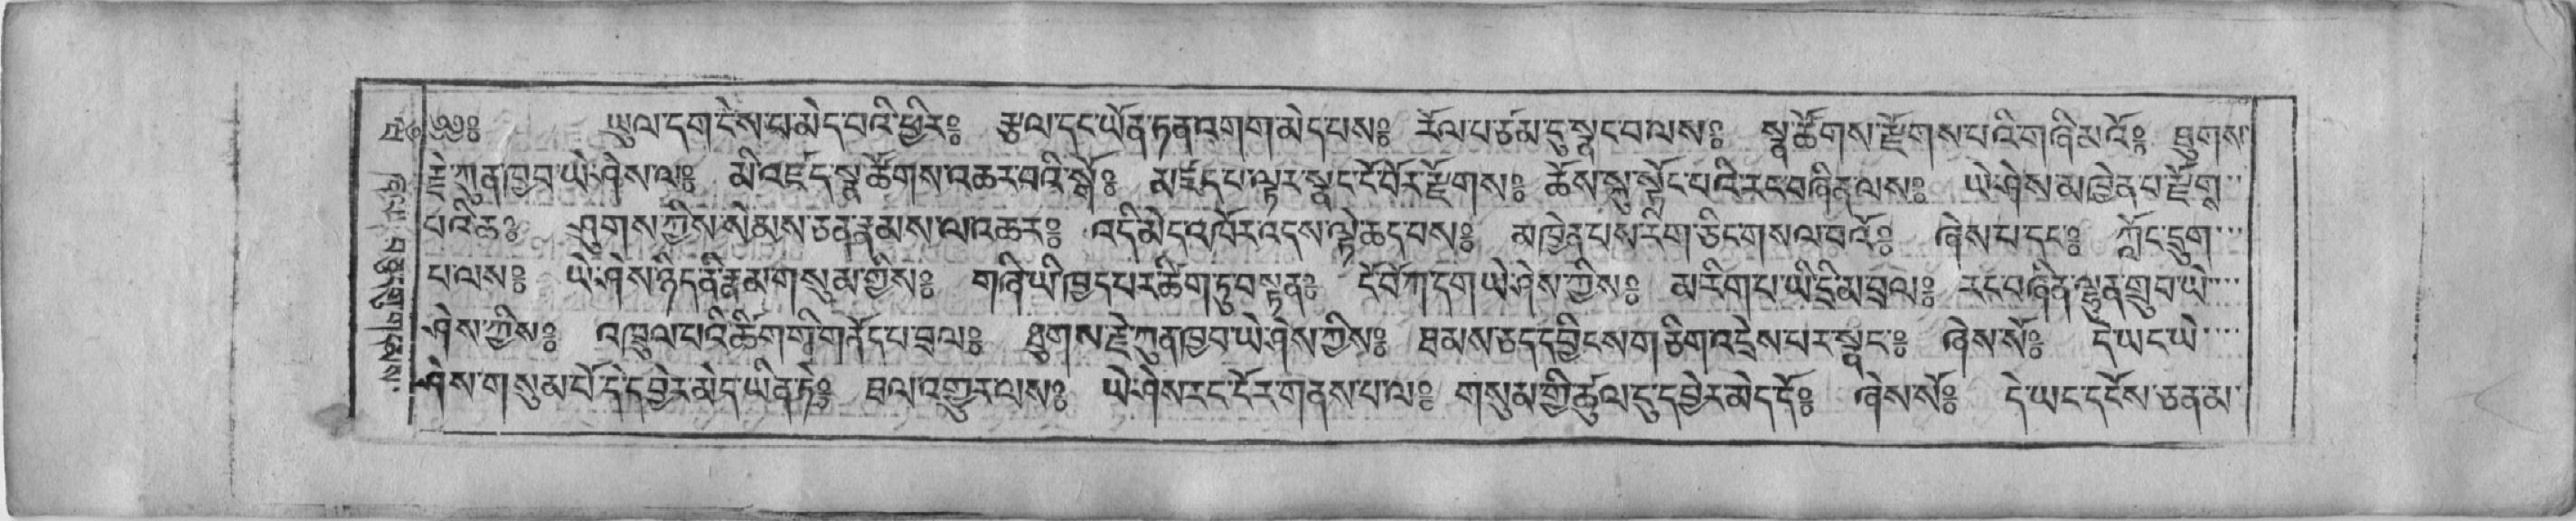 ༄༅༔ ཡུལ་དག་ངེས་པ་མེད་པའི་ཕྱིར༔ རྩལ་དང་ཡོན་ཏན་འགག་མེད་པས༔ རོལ་པ་ཙམ་དུ་སྣང་བ་ལས༔ སྣ་ཚོགས་རྫོགས་པའི་གཞི་མའོ༔ ཐུགས་
རྗེ་ཀུན་ཁྱབ་ཡེ་ཤེས་ལ༔ མི་བརྗོད་སྣ་ཚོགས་འཆར་བའི་སྒོ༔ མ་ལྟར་སྣང་ངོ་བོར་རྫོགས༔ ཆོས་སྐུ་སྟོང་པའི་རང་བཞིན་ལས༔ ཡེ་ཤེས་མཁྱེན་པ་རྫོགས་
པའི་ཆ༔ ཐུགས་ཀྱིས་སེམས་ཅན་རྣམས་ལ་འཆར༔ འདི་མེད་འཁོར་འདས་ལྟེ་ཆད་པས༔ མཁྱེན་པས་རིག་ཅིང་གསལ་བའོ༔ ཞེས་པ་དང༔ ཀློང་དྲུག་
པ་ལས༔ ཡེ་ཤེས་ཉིད་ནི་རྣམ་གསུམ་གྱིས༔ གཞི་ཡི་ཁྱད་པར་ཚིག་ཏུ་བསྟན༔ ངོ་བོ་ཀ་དག་ཡེ་ཤེས་ཀྱིས༔ མ་རིག་པ་ཡི་དྲི་མ་བྲལ༔ རང་བཞིན་ལྷུན་གྲུབ་ཡེ་
ཤེས་ཀྱིས༔ འཁྲུལ་པའི་ཚིག་གི་གནོད་པ་བྲལ༔ ཐུགས་རྗེ་ཀུན་ཁྱབ་ཡེ་ཤེས་ཀྱིས༔ ཐམས་ཅད་དབྱིངས་གཅིག་འདྲེས་པར་སྣང༔ ཞེས་སོ༔ དེ་ཡང་ཡེ་
ཤེས་གསུམ་པོ་དེ་དབྱེར་མེད་ཡིན་ཏེ༔ ཐལ་འགྱུར་ལས༔ ཡེ་ཤེས་རང་ངོར་གནས་པ་ལ༔ གསུམ་གྱི་ཚུལ་དུ་དབྱེར་མེད་དོ༔ ཞེས་སོ༔ དེ་ཡང་དངོས་ཅན་མ་